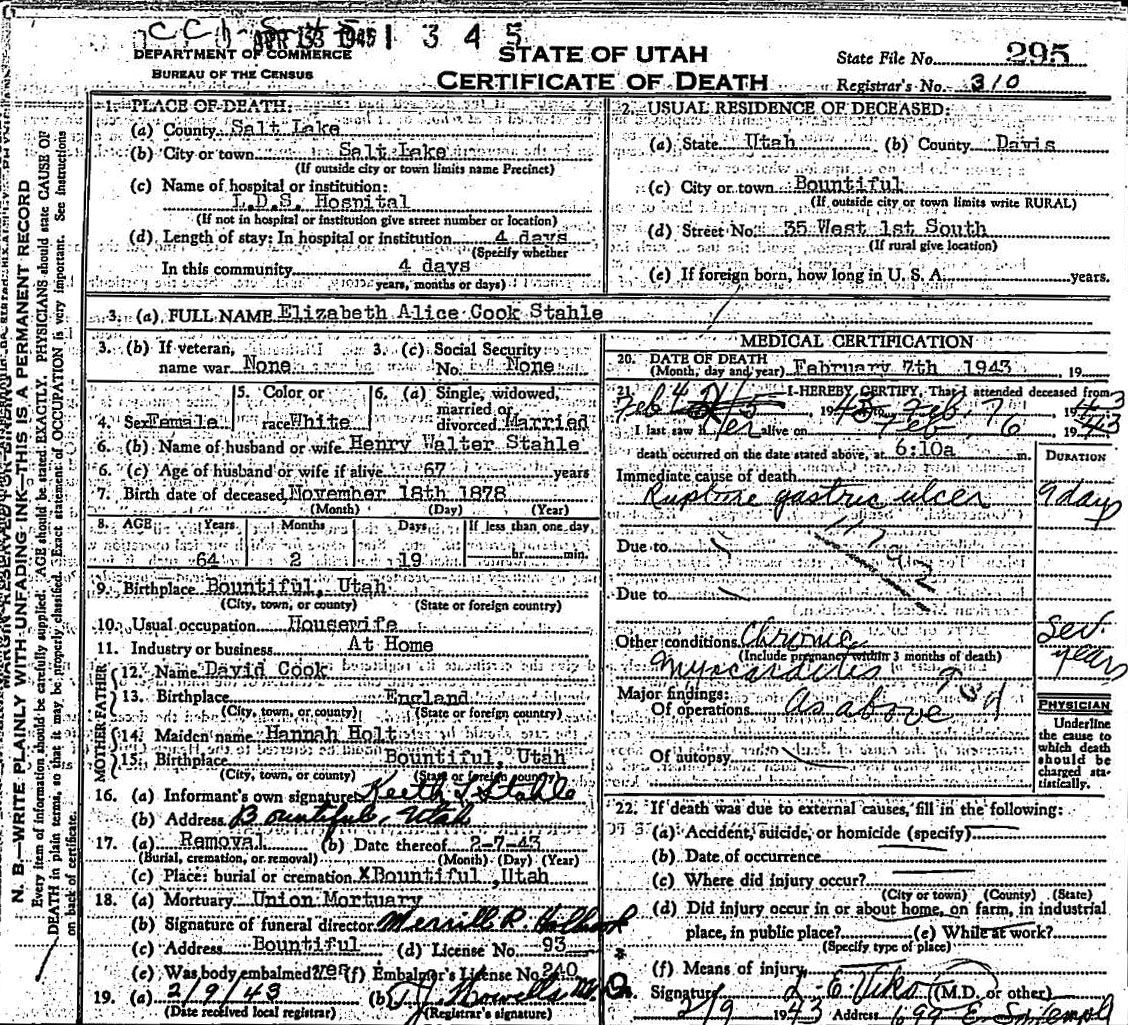 3 4 5
DEPARTMENT OF COMMERCE
BUREAU OF THE CENSUS
STATE OF UTAH
CERTIFICATE OF DEATH
State File No. 295
Registrar's No. 310
N. B.—WRITE PLAINLY WITH UNFADING INK—THIS IS A PERMANENT RECORD
Every item of information should be carefully supplied. AGE should be stated EXACTLY. PHYSICIANS should state CAUSE OF
DEATH in plain terms, so that it may be properly classified. Exact statement of OCCUPATION is very important. See instructions
on back of certificate.
1. PLACE OF DEATH:
(a) County Salt Lake
(b) City or town Salt Lake
(If outside city or town limits name Precinct)
(c) Name of hospital or institution:
L.D.S. Hospital
(If not in hospital or institution give street number or location)
(d) Length of stay: In hospital or institution 4 days
(Specify whether
In this community 4 days
years, months or days)
2. USUAL RESIDENCE OF DECEASED:
(a) State Utah (b) County Davis
(c) City or town Bountiful
(If outside city or town limits write RURAL)
(d) Street No. 35 West 1st South
(If rural give location)
(e) If foreign born, how long in U. S. A. years.
3. (a) FULL NAME Elizabeth Alice Cook Stahle
3. (b) If veteran, name war None
3. (c) Social Security No. None
4. Sex Female
5. Color or race White
6. (a) Single, widowed, married or divorced Married
6. (b) Name of husband or wife Henry Walter Stahle
6. (c) Age of husband or wife if alive 67 years
7. Birth date of deceased November 18th 1878
(Month) (Day) (Year)
8. AGE Years Months Days If less than one day
64 2 19 hr. min.
9. Birthplace Bountiful, Utah
(City, town, or county) (State or foreign country)
10. Usual occupation Housewife
11. Industry or business At Home
FATHER
12. Name David Cook
13. Birthplace England
(City, town, or county) (State or foreign country)
MOTHER
14. Maiden name Hannah Holt
15. Birthplace Bountiful, Utah
(City, town, or county) (State or foreign country)
16. (a) Informant's own signature Keith L Stahle
(b) Address Bountiful, Utah
17. (a) Removal (b) Date thereof 2-7-43
(Burial, cremation, or removal) (Month) (Day) (Year)
(c) Place: burial or cremation XBountiful ,Utah
18. (a) Mortuary Union Mortuary
(b) Signature of funeral director Merrill R. Holbrook
(c) Address Bountiful (d) License No. 93
(e) Was body embalmed yes (f) Embalmer's License No. 240
19. (a) 2/9/43 (b) T.J. Howells M.D.
(Date received local registrar) (Registrar's signature)
MEDICAL CERTIFICATION
20. DATE OF DEATH
(Month, day and year) February 7th 1943 , 19
21. I HEREBY CERTIFY, That I attended deceased from
Feb 4 1943 to Feb. 7 1943
I last saw her alive on Feb 1943
death occurred on the date stated above, at 6:10a m.
DURATION
Immediate cause of death
Rupture gastric ulcer 9 days
Due to
Due to
Other conditions Chronic Sev.
(Include pregnancy within 3 months of death)
Myocarditis years
Major findings:
Of operations As above
Of autopsy
PHYSICIAN
Underline
the cause to
which death
should be
charged sta-
tistically.
22. If death was due to external causes, fill in the following:
(a) Accident, suicide, or homicide (specify)
(b) Date of occurrence
(c) Where did injury occur?
(City or town) (County) (State)
(d) Did injury occur in or about home, on farm, in industrial
place, in public place? (e) While at work?
(Specify type of place)
(f) Means of injury
Signature (M.D. or other)
2/9 1943 Address 699 E. So Temple